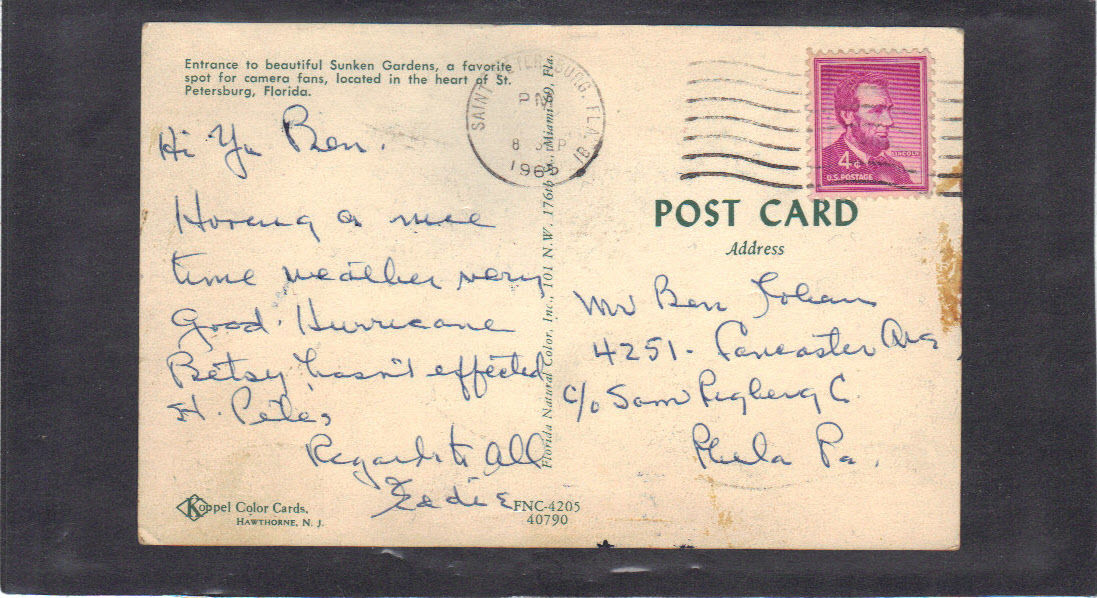 Entrance to beautiful Sunken Gardens, a favorite
spot for camera fans, located in the heart of St.
Petersburg, Florida.
Hi Ya Ben.
Having a nice
time weather very
Good. Hurricane
Betsy hasn't effected
St. Pete,
Regards to All
Eadie
Koppel Color Cards,
HAWTHORNE, N. J.
FNC-4205
40790
Florida Natural Color, Inc., 101 N.W. 176th St., Miami 69, Fla.
SAINT PETERSBURG, FLA
PM
8 SEP
1965
LINCOLN
4¢
U.S. POSTAGE
POST CARD
Address
Mr Ben
4251- Lancaster Ave
c/o Sam
Phila Pa.